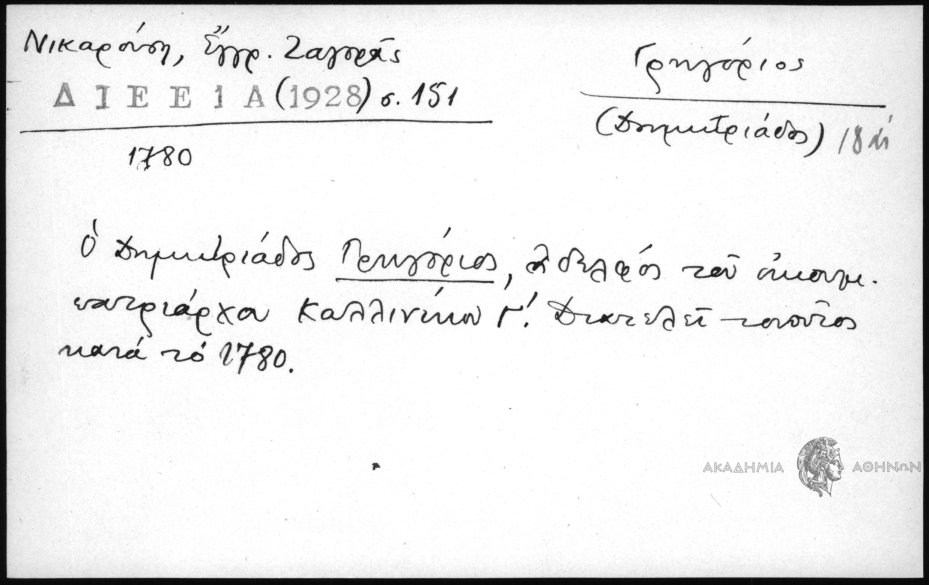 Νικαρούση, Ἔγγρ. Ζαγορᾶς
Δ Ι Ε Ε 1 Α (1928) σ. 151
1780
Γρηγόριος
(Δημητριάδος) 18 αἰ
Ὁ Δημητριάδος Γρηγόριος, ἀδελφός τοῦ οἰκουμ.
πατριάρχου Καλλινίκου Γ΄. Διατελεῖ τοιοῦτος
κατά τό 1780.
ΑΚΑΔΗΜΙΑ ΑΘΗΝΩΝ